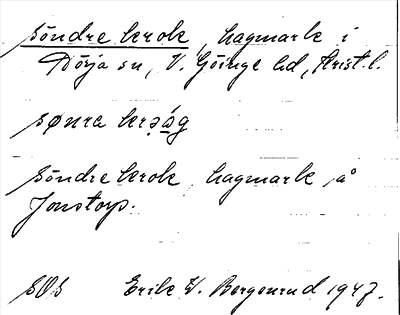 Söndre krok, hagmark i
Dörja sn, V. Göinge hd, Krist. l.
sønra
Söndre krok, hagmark å
Jonstorp.
SOS Erik W. Bergenrud 1947.